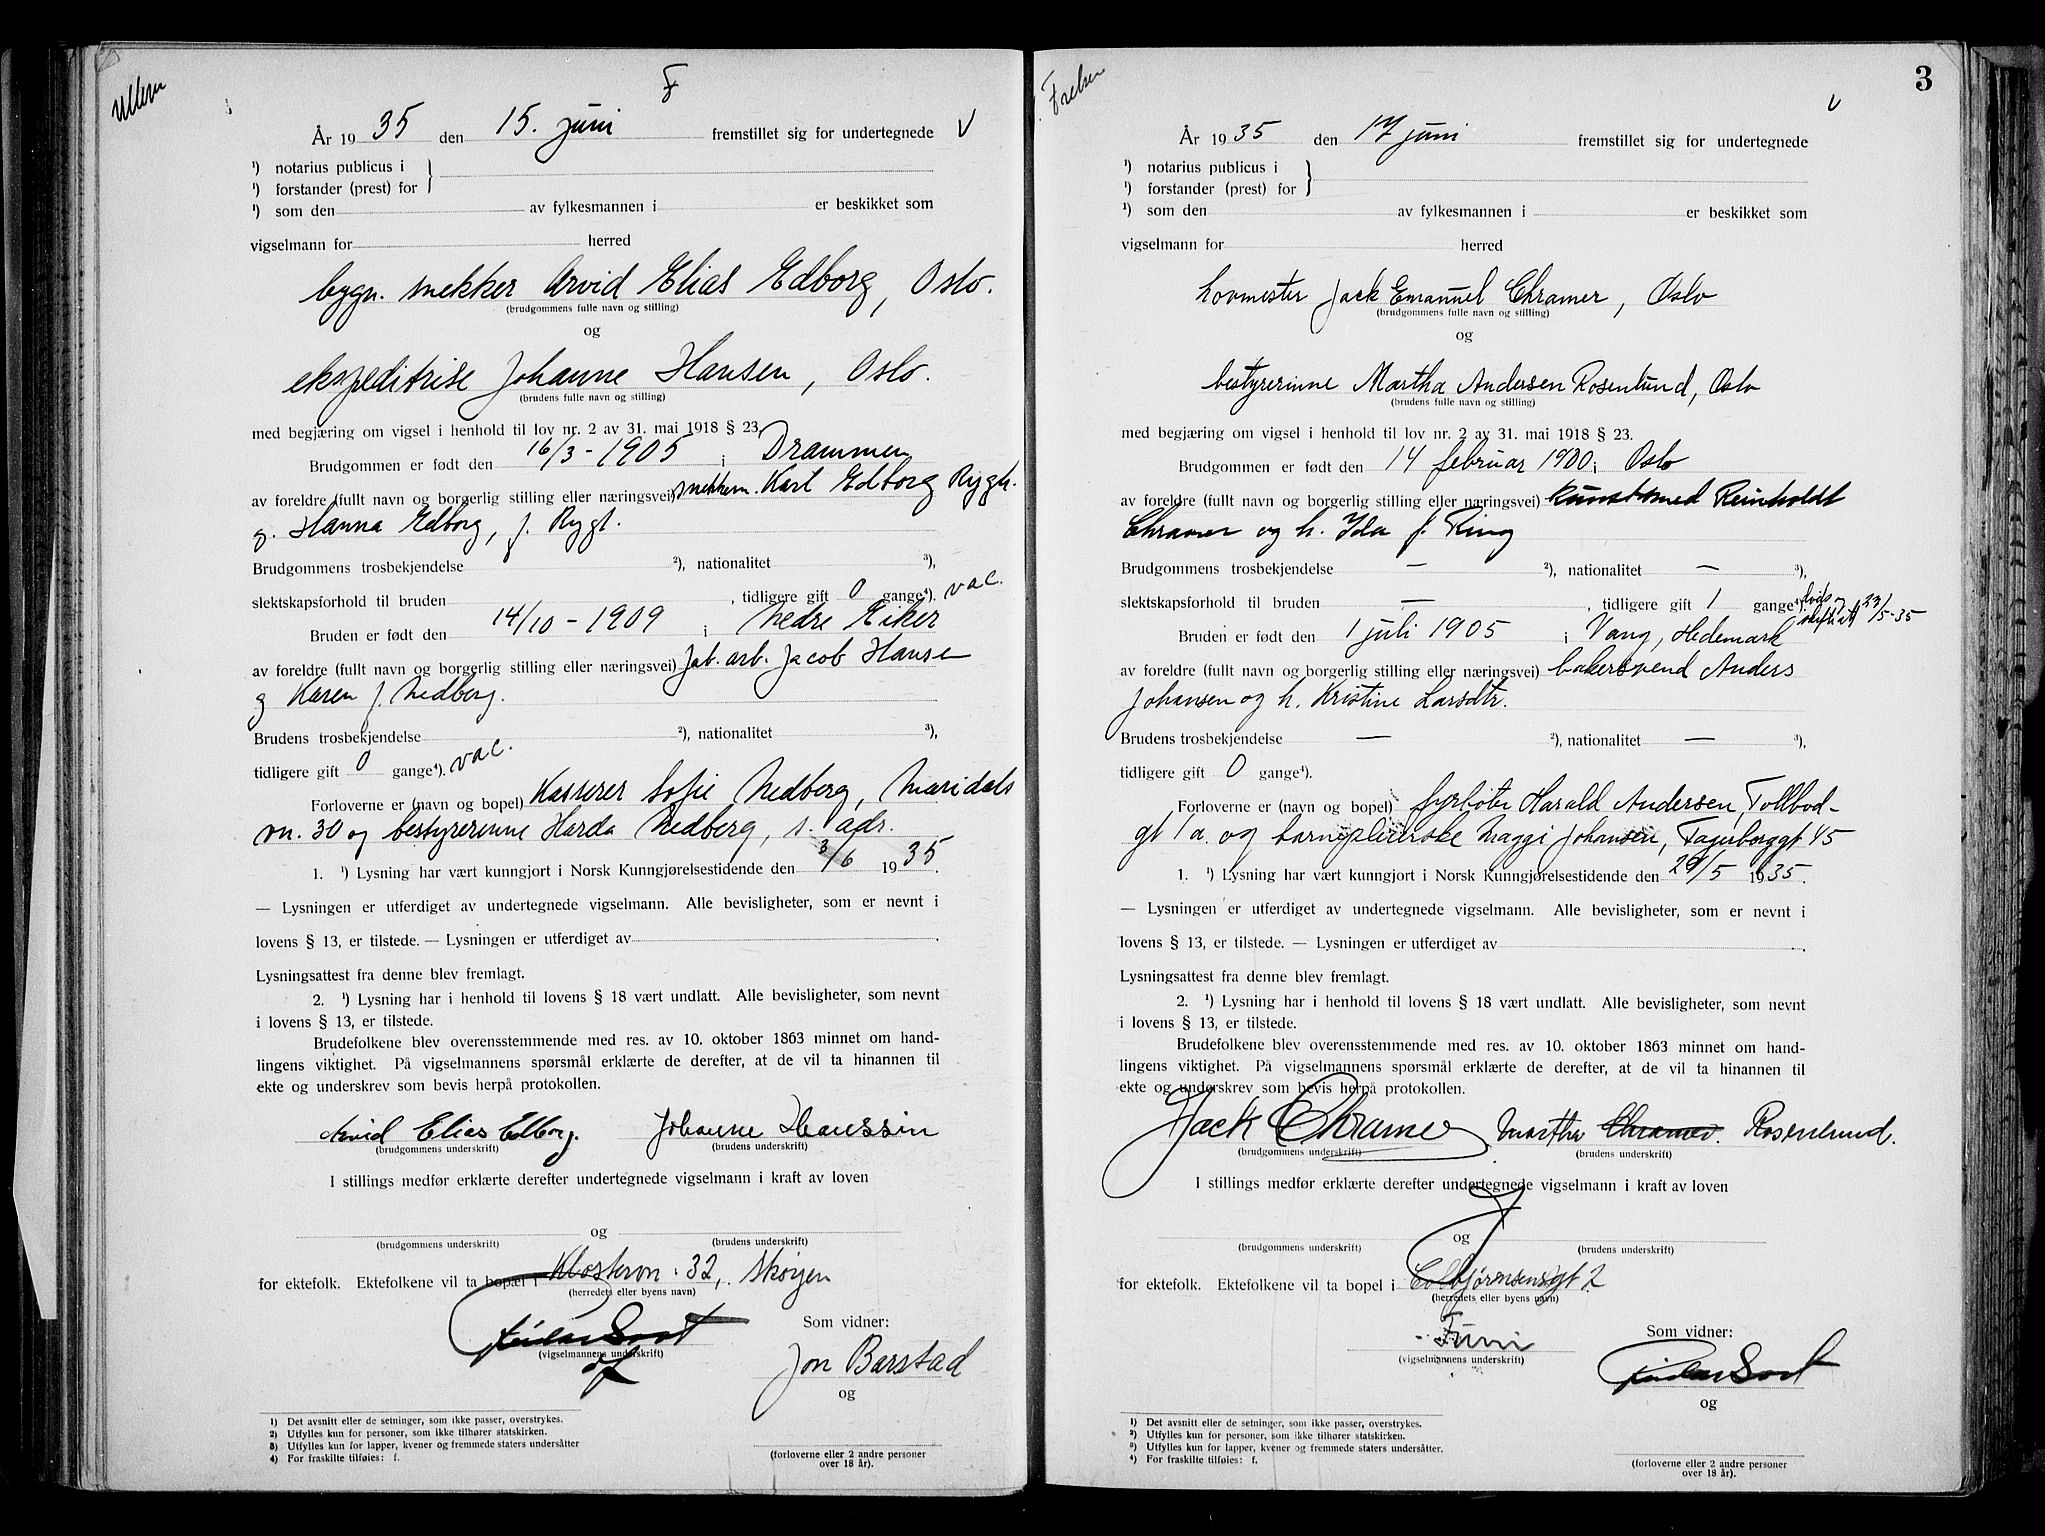 Ullern
F
År 1935 den 15. juni fremstillet sig for undertegnede V
¹) notarius publicus i
¹) forstander (prest) for
¹) som den av fylkesmannen i er beskikket som
vigselmann for herred
bygn. snekker Arvid Elias Edborg, Oslo.
(brudgommens fulle navn og stilling)
og
ekspeditrise Johanne Hansen, Oslo.
(brudens fulle navn og stilling)
med begjæring om vigsel i henhold til lov nr. 2 av 31. mai 1918 § 23.
Brudgommen er født den 16/3 - 1905 i Drammen
av foreldre (fullt navn og borgerlig stilling eller næringsvei) snekkerm. Karl Edborg Rygh.
g. Hanna Edborg, f. Rygh.
Brudgommens trosbekjendelse ²), nationalitet ³),
slektskapsforhold til bruden , tidligere gift 0 gange⁴). vac.
Bruden er født den 14/10 - 1909 i Nedre Eiker
av foreldre (fullt navn og borgerlig stilling eller næringsvei) fab. arb. Jacob Hansen
g Karen f. Nedberg.
Brudens trosbekjendelse ²), nationalitet ³),
tidligere gift 0 gange⁴). vac.
Forloverne er (navn og bopel) Kasserer Sofie Nedberg, Maridals
vn. 30 og bestyrerinne Harda Nedberg, s. adr.
1. ¹) Lysning har vært kunngjort i Norsk Kunngjørelsestidende den 3/6 1935.
— Lysningen er utferdiget av undertegnede vigselmann. Alle bevisligheter, som er nevnt i
lovens § 13, er tilstede. — Lysningen er utferdiget av .
Lysningsattest fra denne blev fremlagt.
2. ¹) Lysning har i henhold til lovens § 18 vært undlatt. Alle bevisligheter, som nevnt
i lovens § 13, er tilstede.
Brudefolkene blev overensstemmende med res. av 10. oktober 1863 minnet om hand-
lingens viktighet. På vigselmannens spørsmål erklærte de derefter, at de vil ta hinannen til
ekte og underskrev som bevis herpå protokollen.
Arvid Elias Edborg. Johanne Hanssen
(brudgommens underskrift) (brudens underskrift)
I stillings medfør erklærte derefter undertegnede vigselmann i kraft av loven
og
(brudgommens underskrift) (brudens underskrift)
for ektefolk. Ektefolkene vil ta bopel i Klostervn. 32, Skøyen
(herredets eller byens navn)
Som vidner:
(vigselmannens underskrift)
Jon Barstad
og
(forloverne eller 2 andre personer
over 18 år).
1) Det avsnitt eller de setninger, som ikke passer, overstrykes.
2) Utfylles kun for personer, som ikke tilhører statskirken.
3) Utfylles kun for lapper, kvener og fremmede staters undersåtter
4) For fraskilte tilføies: f.
Frelser
3
År 1935 den 17 juni fremstillet sig for undertegnede
¹) notarius publicus i
¹) forstander (prest) for
¹) som den av fylkesmannen i er beskikket som
vigselmann for herred
hovmester Jack Emanuel Chramer, Oslo
(brudgommens fulle navn og stilling)
og
bestyrerinne Martha Andersen Rosenlund, Oslo
(brudens fulle navn og stilling)
med begjæring om vigsel i henhold til lov nr. 2 av 31. mai 1918 § 23.
Brudgommen er født den 14 februar 1900 i Oslo
av foreldre (fullt navn og borgerlig stilling eller næringsvei) kunstsmed Reinholdt
Chramer og h. Ida f. Ring
Brudgommens trosbekjendelse — ²), nationalitet — ³),
slektskapsforhold til bruden — , tidligere gift 1 gange⁴). 23/5-35
Bruden er født den 1 juli 1905 i Vang, Hedemark
av foreldre (fullt navn og borgerlig stilling eller næringsvei) bakersvend Anders
Johansen og h. Kristine Larsdtr.
Brudens trosbekjendelse — ²), nationalitet — ³),
tidligere gift 0 gange⁴).
Forloverne er (navn og bopel) fyrbøter Harald Andersen, Tollbod-
gt 1 a. og barnepleierske Maggi Johansen, Fagerborggt 45
1. ¹) Lysning har vært kunngjort i Norsk Kunngjørelsestidende den 29/5 1935.
— Lysningen er utferdiget av undertegnede vigselmann. Alle bevisligheter, som er nevnt i
lovens § 13, er tilstede. — Lysningen er utferdiget av .
Lysningsattest fra denne blev fremlagt.
2. ¹) Lysning har i henhold til lovens § 18 vært undlatt. Alle bevisligheter, som nevnt
i lovens § 13, er tilstede.
Brudefolkene blev overensstemmende med res. av 10. oktober 1863 minnet om hand-
lingens viktighet. På vigselmannens spørsmål erklærte de derefter, at de vil ta hinannen til
ekte og underskrev som bevis herpå protokollen.
Jack Chramer Martha Chramer. Rosenlund.
(brudgommens underskrift) (brudens underskrift)
I stillings medfør erklærte derefter undertegnede vigselmann i kraft av loven
og
(brudgommens underskrift) (brudens underskrift)
for ektefolk. Ektefolkene vil ta bopel i Colbjørnsensgt 2
(herredets eller byens navn)
Som vidner:
(vigselmannens underskrift)
og
(forloverne eller 2 andre personer
over 18 år).
¹) Det avsnitt eller de setninger, som ikke passer, overstrykes.
²) Utfylles kun for personer, som ikke tilhører statskirken.
³) Utfylles kun for lapper, kvener og fremmede staters undersåtter.
⁴) For fraskilte tilføies: f.